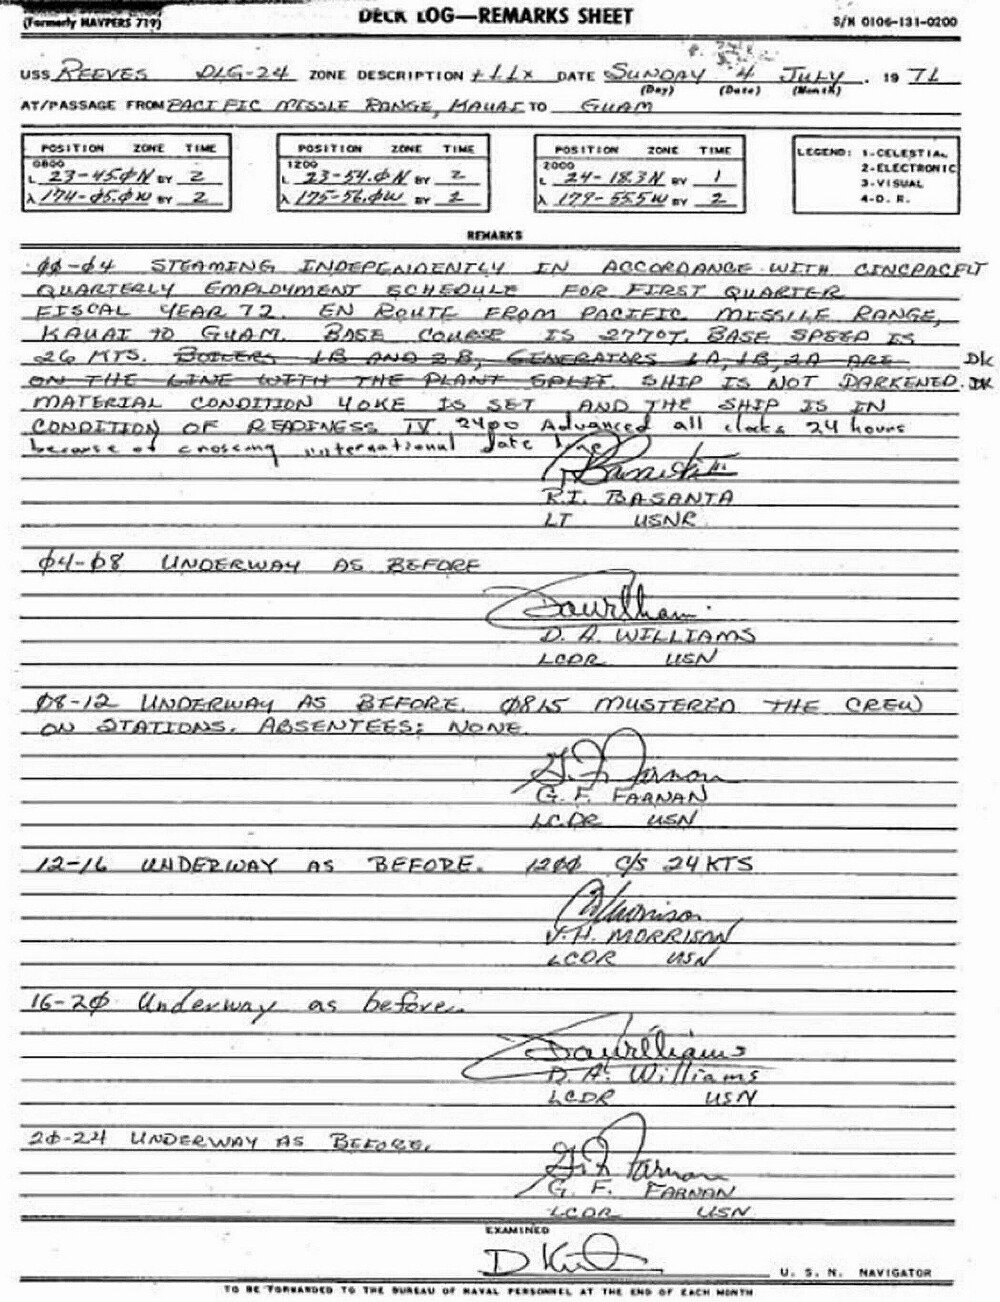 (Formerly NAVPERS 719)
DECK LOG—REMARKS SHEET
S/N 0106-131-0200
USS REEVES DLG-24 ZONE DESCRIPTION +11X DATE SUNDAY 4 JULY , 19 71
(Day) (Date) (Month)
AT/PASSAGE FROM PACIFIC MISSLE RANGE, KAUAI TO GUAM
POSITION ZONE TIME
0800
L 23-45.0N BY 2
λ 174-05.0W BY 2
POSITION ZONE TIME
1200
L 23-54.0N BY 2
λ 175-56.0W BY 2
POSITION ZONE TIME
2000
L 24-18.3N BY 1
λ 179-55.5W BY 2
LEGEND: 1-CELESTIAL
2-ELECTRONIC
3-VISUAL
4-D. R.
REMARKS
00-04 STEAMING INDEPENDENTLY IN ACCORDANCE WITH CINCPACFLT
QUARTERLY EMPLOYMENT SCHEDULE FOR FIRST QUARTER
FISCAL YEAR 72. EN ROUTE FROM PACIFIC MISSILE RANGE,
KAUAI TO GUAM. BASE COURSE IS 277°T. BASE SPEED IS
26 KTS. BOILERS 1B AND 2B, GENERATORS 1A, 1B, 2A ARE DK
ON THE LINE WITH THE PLANT SPLIT. SHIP IS NOT DARKENED. DK
MATERIAL CONDITION YOKE IS SET AND THE SHIP IS IN
CONDITION OF READINESS IV 2400 Advanced all clocks 24 hours
because of crossing international date line
R.I. BASANTA
LT USNR
04-08 UNDERWAY AS BEFORE
D. A. WILLIAMS
LCDR USN
08-12 UNDERWAY AS BEFORE. 0815 MUSTERED THE CREW
ON STATIONS. ABSENTEES: NONE.
G. F. Farnan
G. F. FARNAN
LCDR USN
12-16 UNDERWAY AS BEFORE. 1200 C/S 24 KTS
J. H. MORRISON
LCDR USN
16-20 Underway as before.
D. A. Williams
LCDR USN
20-24 UNDERWAY AS BEFORE.
G. F. Farnan
G. F. FARNAN
LCDR USN
EXAMINED
U. S. N. NAVIGATOR
TO BE FORWARDED TO THE BUREAU OF NAVAL PERSONNEL AT THE END OF EACH MONTH